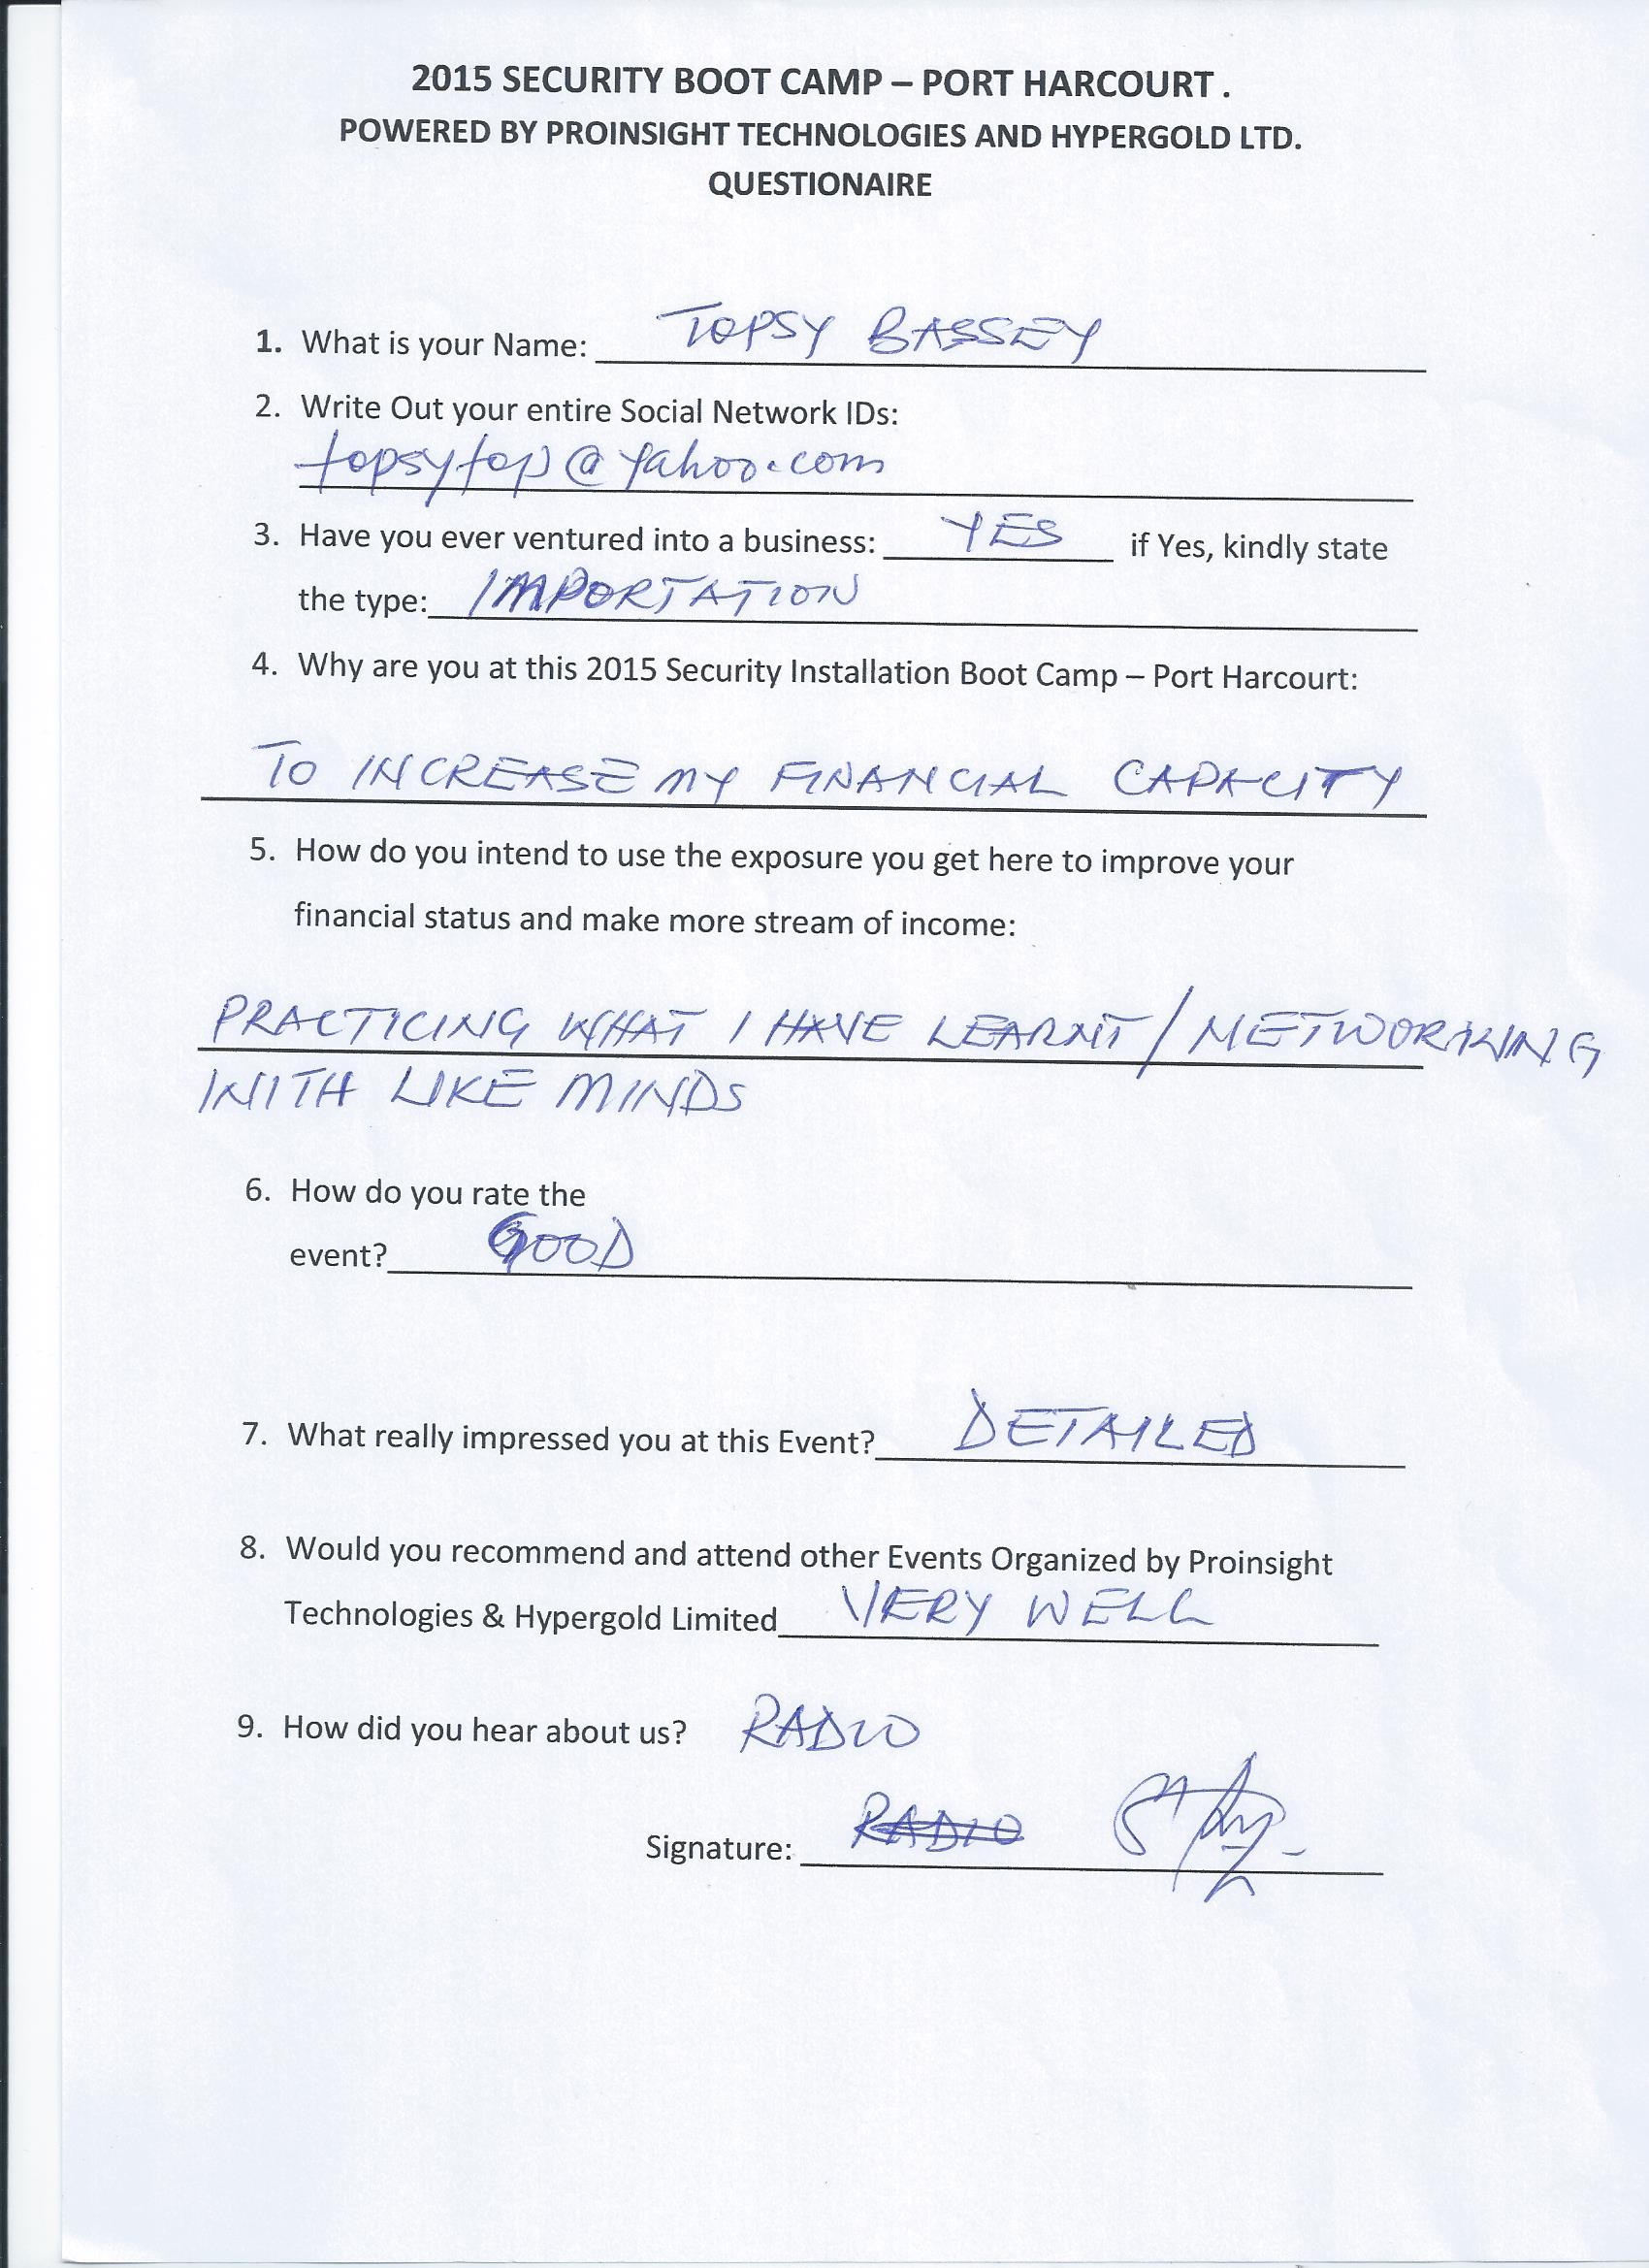 2015 SECURITY BOOT CAMP – PORT HARCOURT .
POWERED BY PROINSIGHT TECHNOLOGIES AND HYPERGOLD LTD.
QUESTIONAIRE
1. What is your Name: TOPSY BASSEY
2. Write Out your entire Social Network IDs:
topsytop@yahoo.com
3. Have you ever ventured into a business: YES if Yes, kindly state
the type: IMPORTATION
4. Why are you at this 2015 Security Installation Boot Camp – Port Harcourt:
TO INCREASE MY FINANCIAL CAPACITY
5. How do you intend to use the exposure you get here to improve your
financial status and make more stream of income:
PRACTICING WHAT I HAVE LEARNT / NETWORKING
WITH LIKE MINDS
6. How do you rate the
event? GOOD
7. What really impressed you at this Event? DETAILED
8. Would you recommend and attend other Events Organized by Proinsight
Technologies & Hypergold Limited VERY WELL
9. How did you hear about us? RADIO
Signature: RADIO